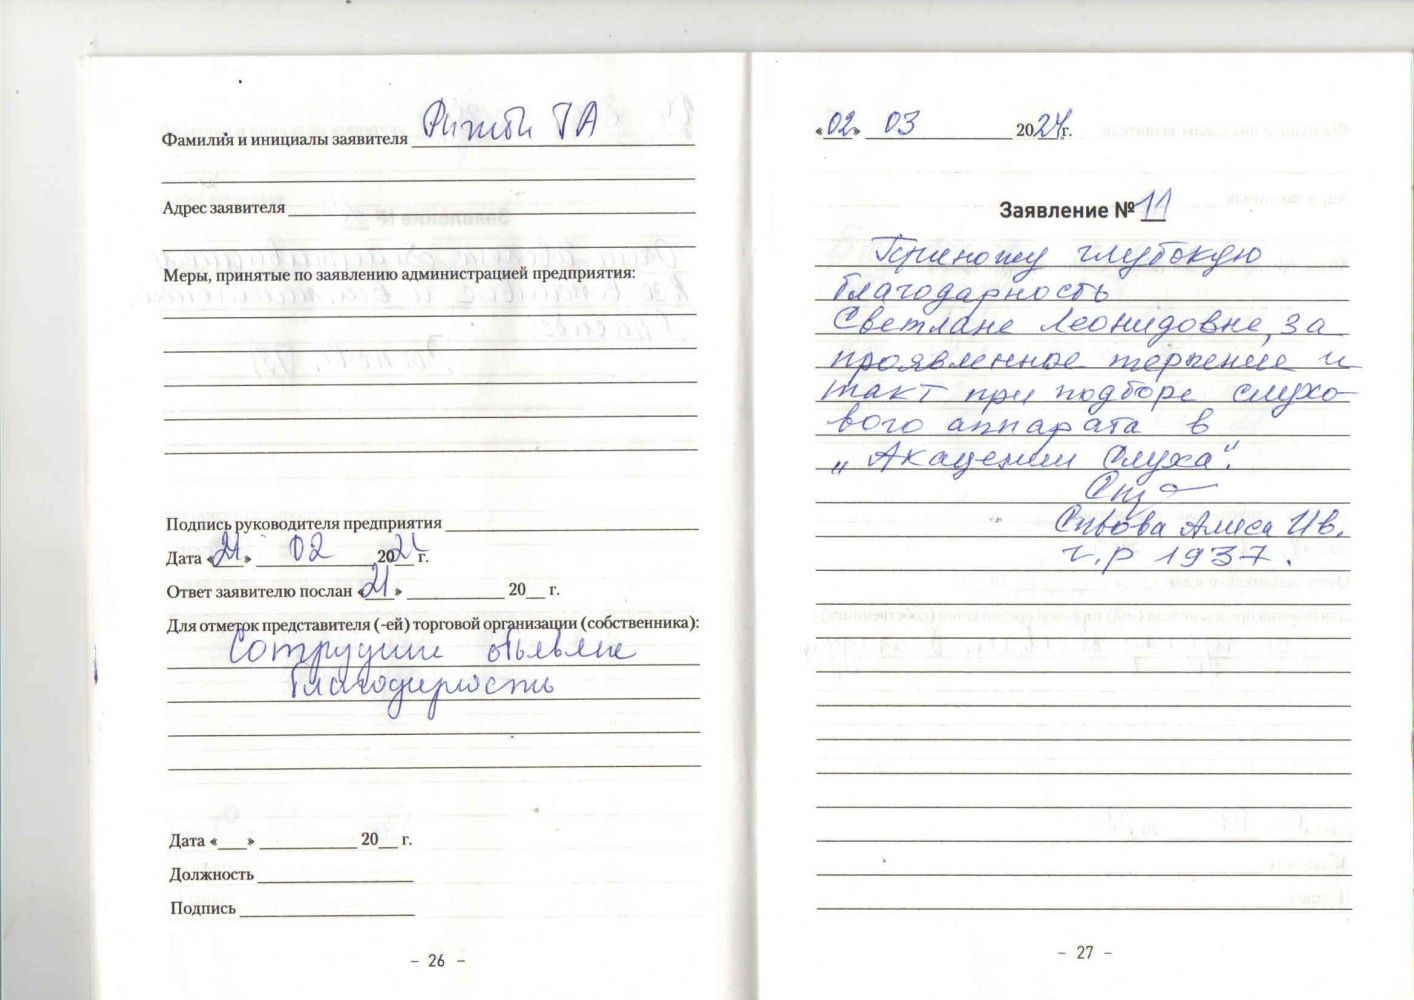 Фамилия и инициалы заявителя
Адрес заявителя
Меры, принятые по заявлению администрацией предприятия:
Подпись руководителя предприятия
Дата «21» 02 2024 г.
Ответ заявителю послан «21» 20__ г.
Для отметок представителя (-ей) торговой организации (собственника):
благодарность
Дата «___» 20__ г.
Должность
Подпись
- 26 -
«02» 03 2024г.
Заявление № 11
Приношу глубокую
благодарность
Светлане Леонидовне, за
проявленное терпение и
такт при подборе слухо-
вого аппарата в
„Академии Слуха".
Алиса Ив.
г.р 1937.
- 27 -